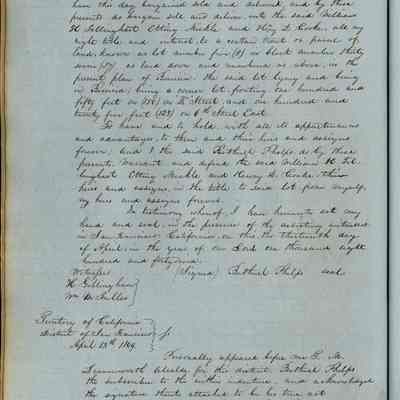 him this day bargained sold and delivered, and by these
presents do bargain sell and deliver unto the said William
H Tillinghast Otting Mickle and Henry D. Cooke, all my
right title and interest, to a certain tract or parcel of
land, known as lot number five (5) in block number thirty
seven (37) as laid down and numbered as above, in the
present plan of Benicia. the said lot lying and being
in Benicia, being a corner lot, fronting one hundred and
fifty feet on (150) on D. Street, and one hundred and
twenty five feet (125) on 6th Street East.
To have and to hold, with all its appurtenances
and advantages to them and their heirs and assigns
forever, and I the said Bethuel Phelps do by these
presents, warrant and defend the said William H Til
linghast Otting Mickle and Henry D. Cooke, their
heirs and assigns, in the title to said lot from myself,
my heirs and assigns forever.
In testimony whereof, I have hereunto set my
hand and seal, in the presence of the attesting witnesses
in San Francisco California, on this the thirteenth day
of April, in the year of our Lord one thousand eight
hundred and forty nine.
Witnesses (Signed) Bethuel Phelps seal
W Tillinghast
Wm M. Fuller
Territory of California
District of San Francisco
April 13th 1849.
Personally appeared before me T. M.
Leavenworth Alcalde for this district, Bethuel Phelps
the subscriber to the within indenture, and acknowledged
the signature thereto attached to be his true act